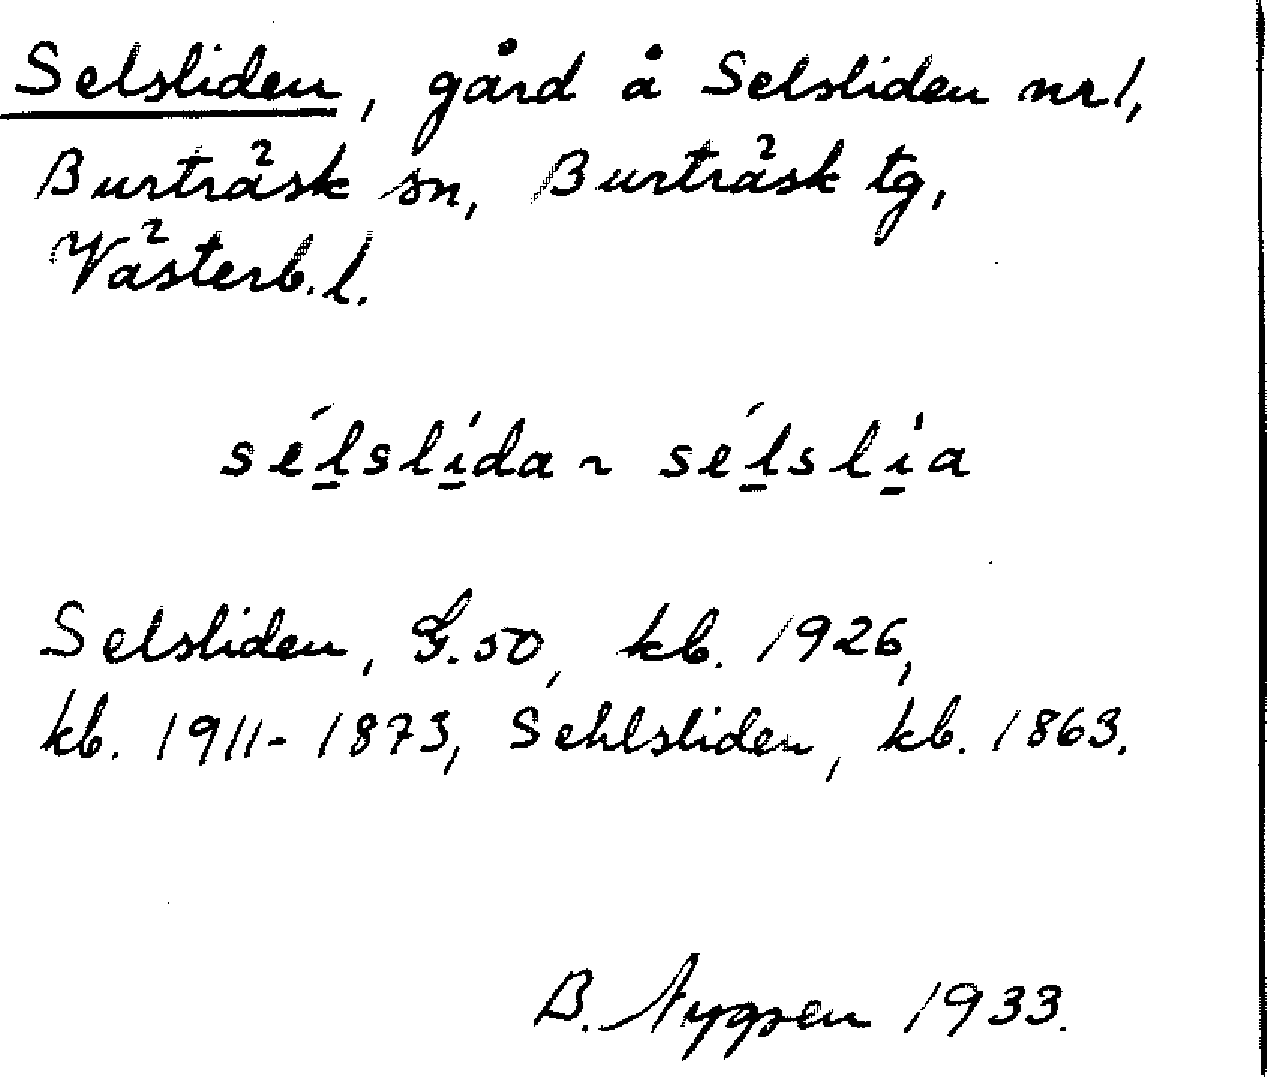 Selsliden, gård å Selsliden nr 1,
Burträsk sn, Burträsk tg,
Västerb. l.
sélslída ~ sélslía
Selsliden, G. 50, kb. 1926,
kb. 1911-1873, Sehlsliden, kb. 1863.
B. Nygren 1933.